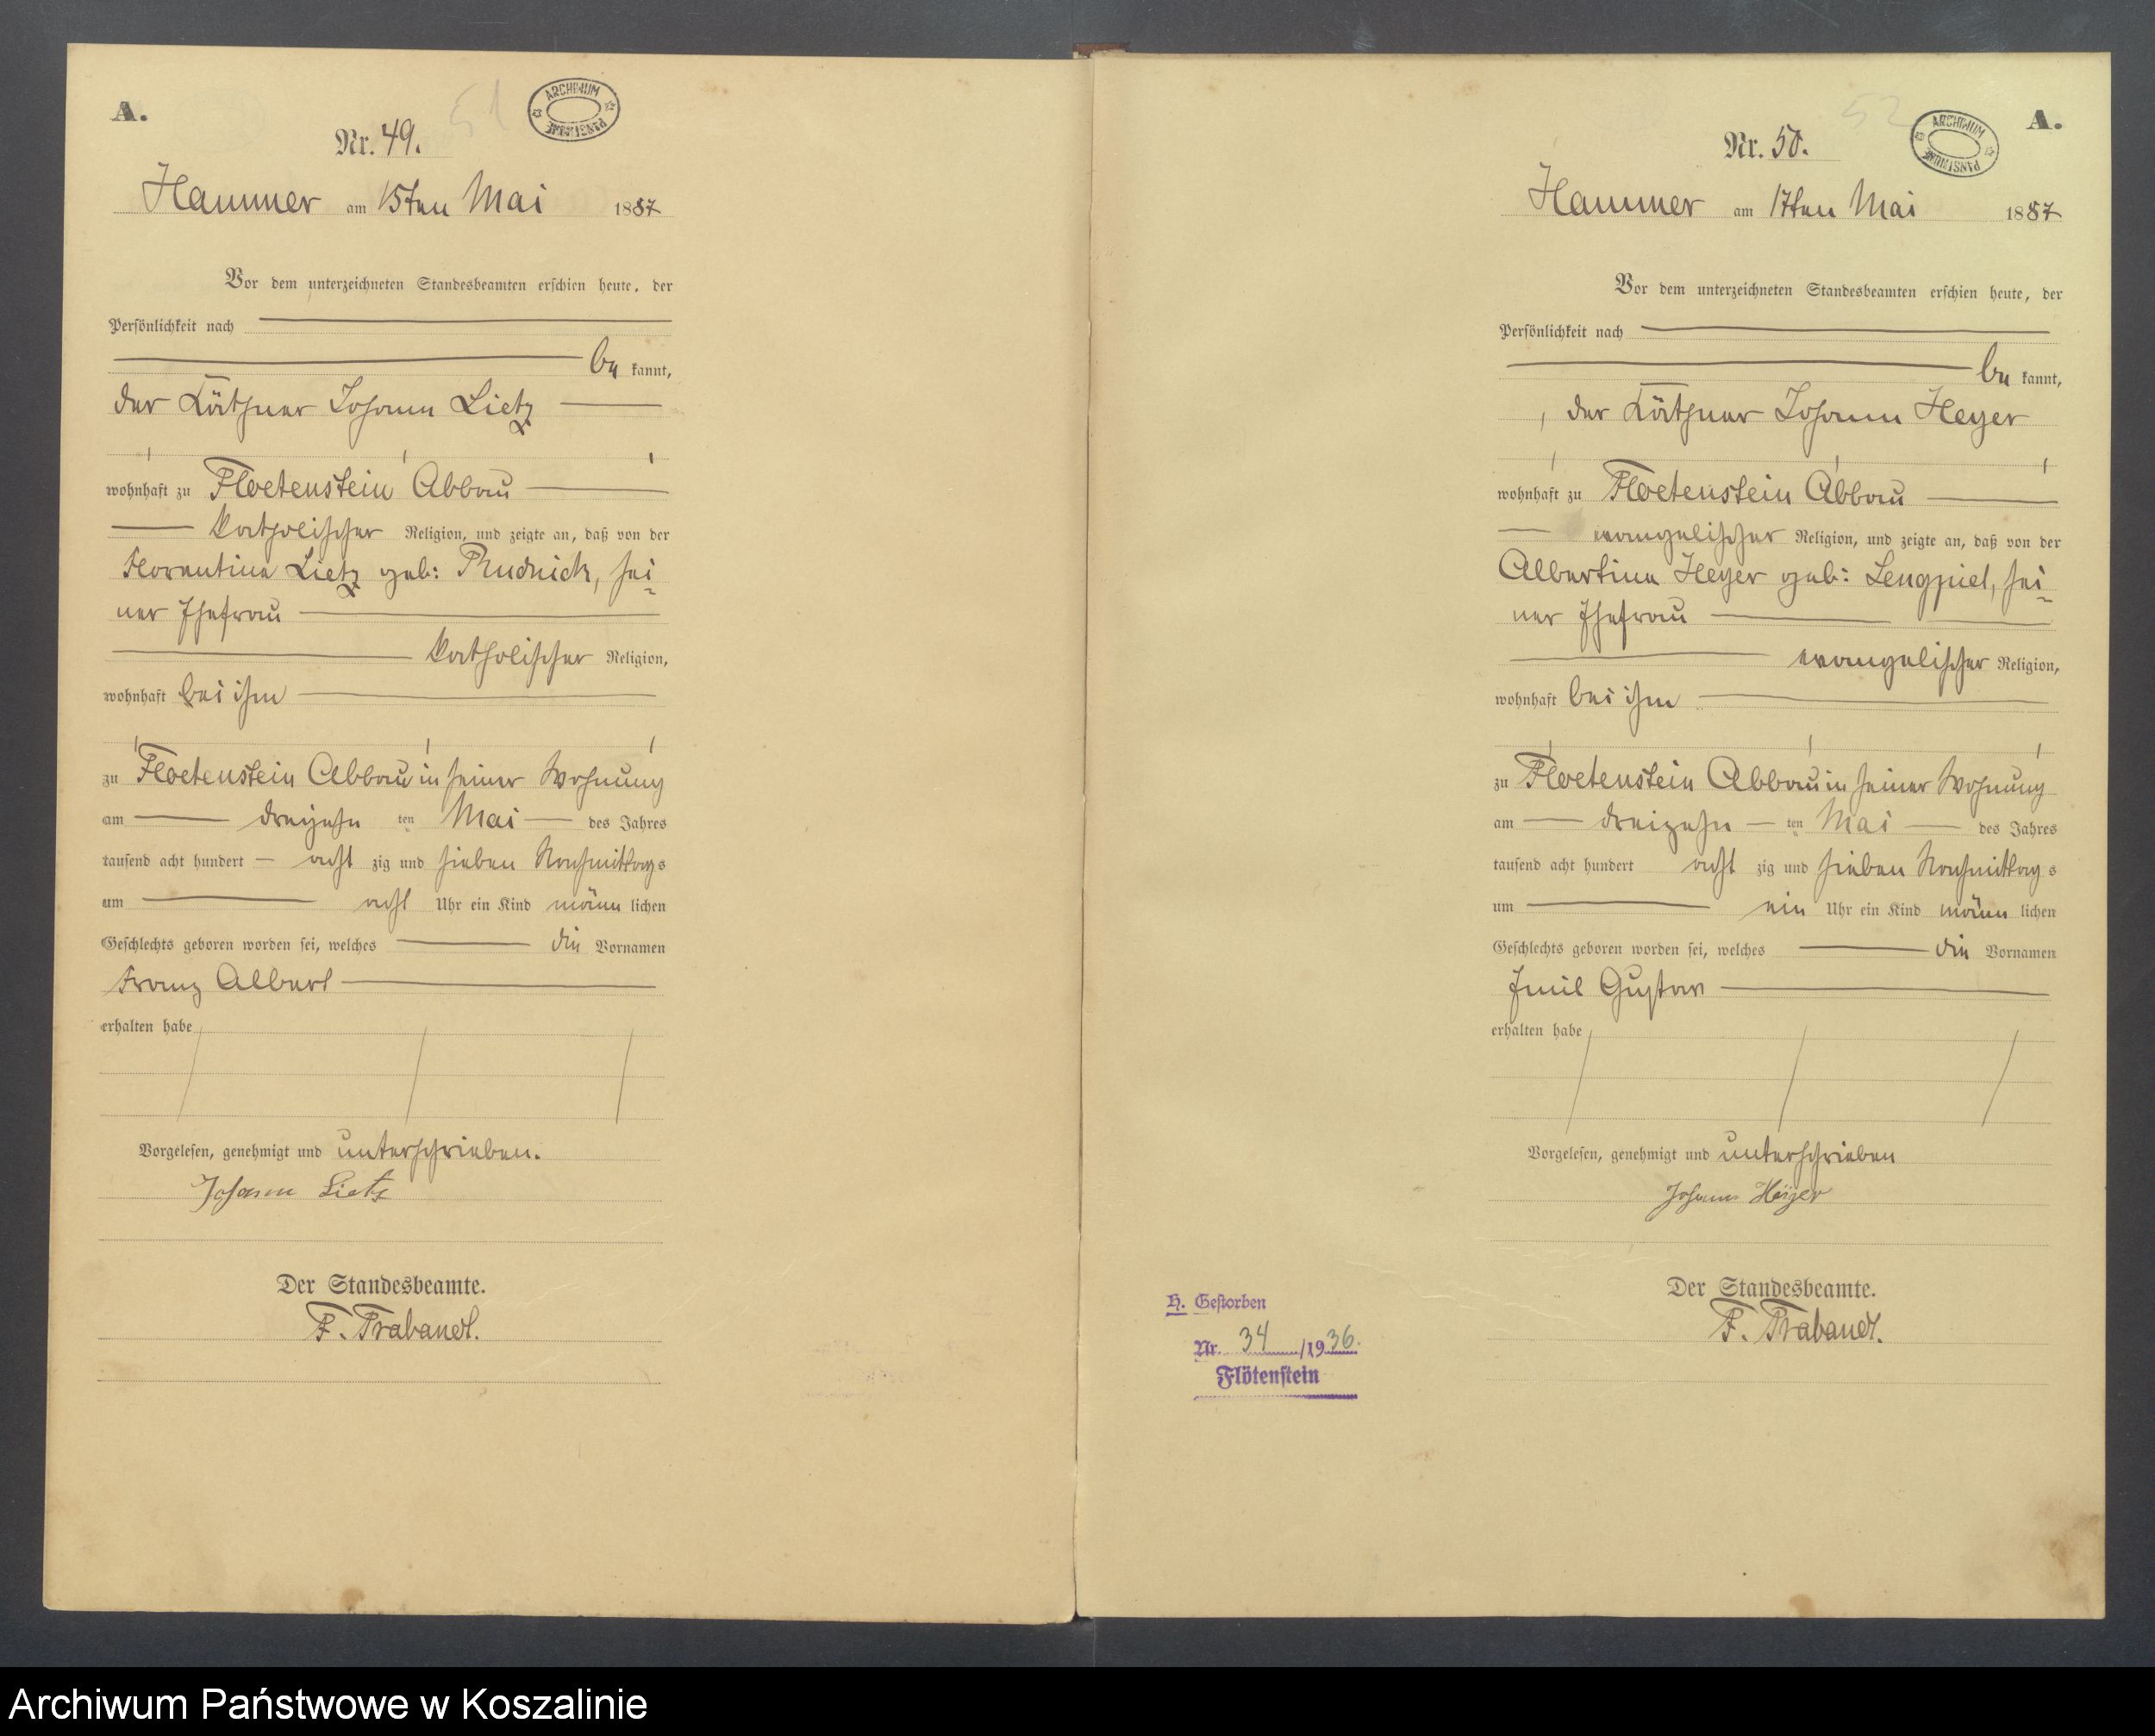 A.
Nr. 49.
51
ARCHIWUM PAŃSTWOWE
Hammer am 15ten Mai 1887
Vor dem unterzeichneten Standesbeamten erschien heute, der
Persönlichkeit nach
be kannt,
der Käthner Johann Lietz
wohnhaft zu Floetenstein Abbau
katholischer Religion, und zeigte an, daß von der
Florentine Lietz geb: Rudnick, sei=
ner Ehefrau
katholischer Religion,
wohnhaft bei ihm
zu Floetenstein Abbau in seiner Wohnung
am dreizehn ten Mai des Jahres
tausend acht hundert acht zig und sieben Nachmittags
um acht Uhr ein Kind männ lichen
Geschlechts geboren worden sei, welches die Vornamen
Franz Albert
erhalten habe
Vorgelesen, genehmigt und unterschrieben.
Johann Lietz
Der Standesbeamte.
F. Trabandt.
A.
Nr. 50.
52
ARCHIWUM PAŃSTWOWE
Hammer am 17ten Mai 1887
Vor dem unterzeichneten Standesbeamten erschien heute, der
Persönlichkeit nach
be kannt,
der Käthner Johann Heyer
wohnhaft zu Floetenstein Abbau
evangelischer Religion, und zeigte an, daß von der
Albertine Heyer geb: Lengpiel, sei=
ner Ehefrau
evangelischer Religion,
wohnhaft bei ihm
zu Floetenstein Abbau in seiner Wohnung
am dreizehn ten Mai des Jahres
tausend acht hundert acht zig und sieben Nachmittags
um ein Uhr ein Kind männ lichen
Geschlechts geboren worden sei, welches die Vornamen
Emil Gustav
erhalten habe
Vorgelesen, genehmigt und unterschrieben
Johann Heijer
Der Standesbeamte.
F. Trabandt.
H. Gestorben
Nr. 34 /1936.
Flötenstein
Archiwum Państwowe w Koszalinie